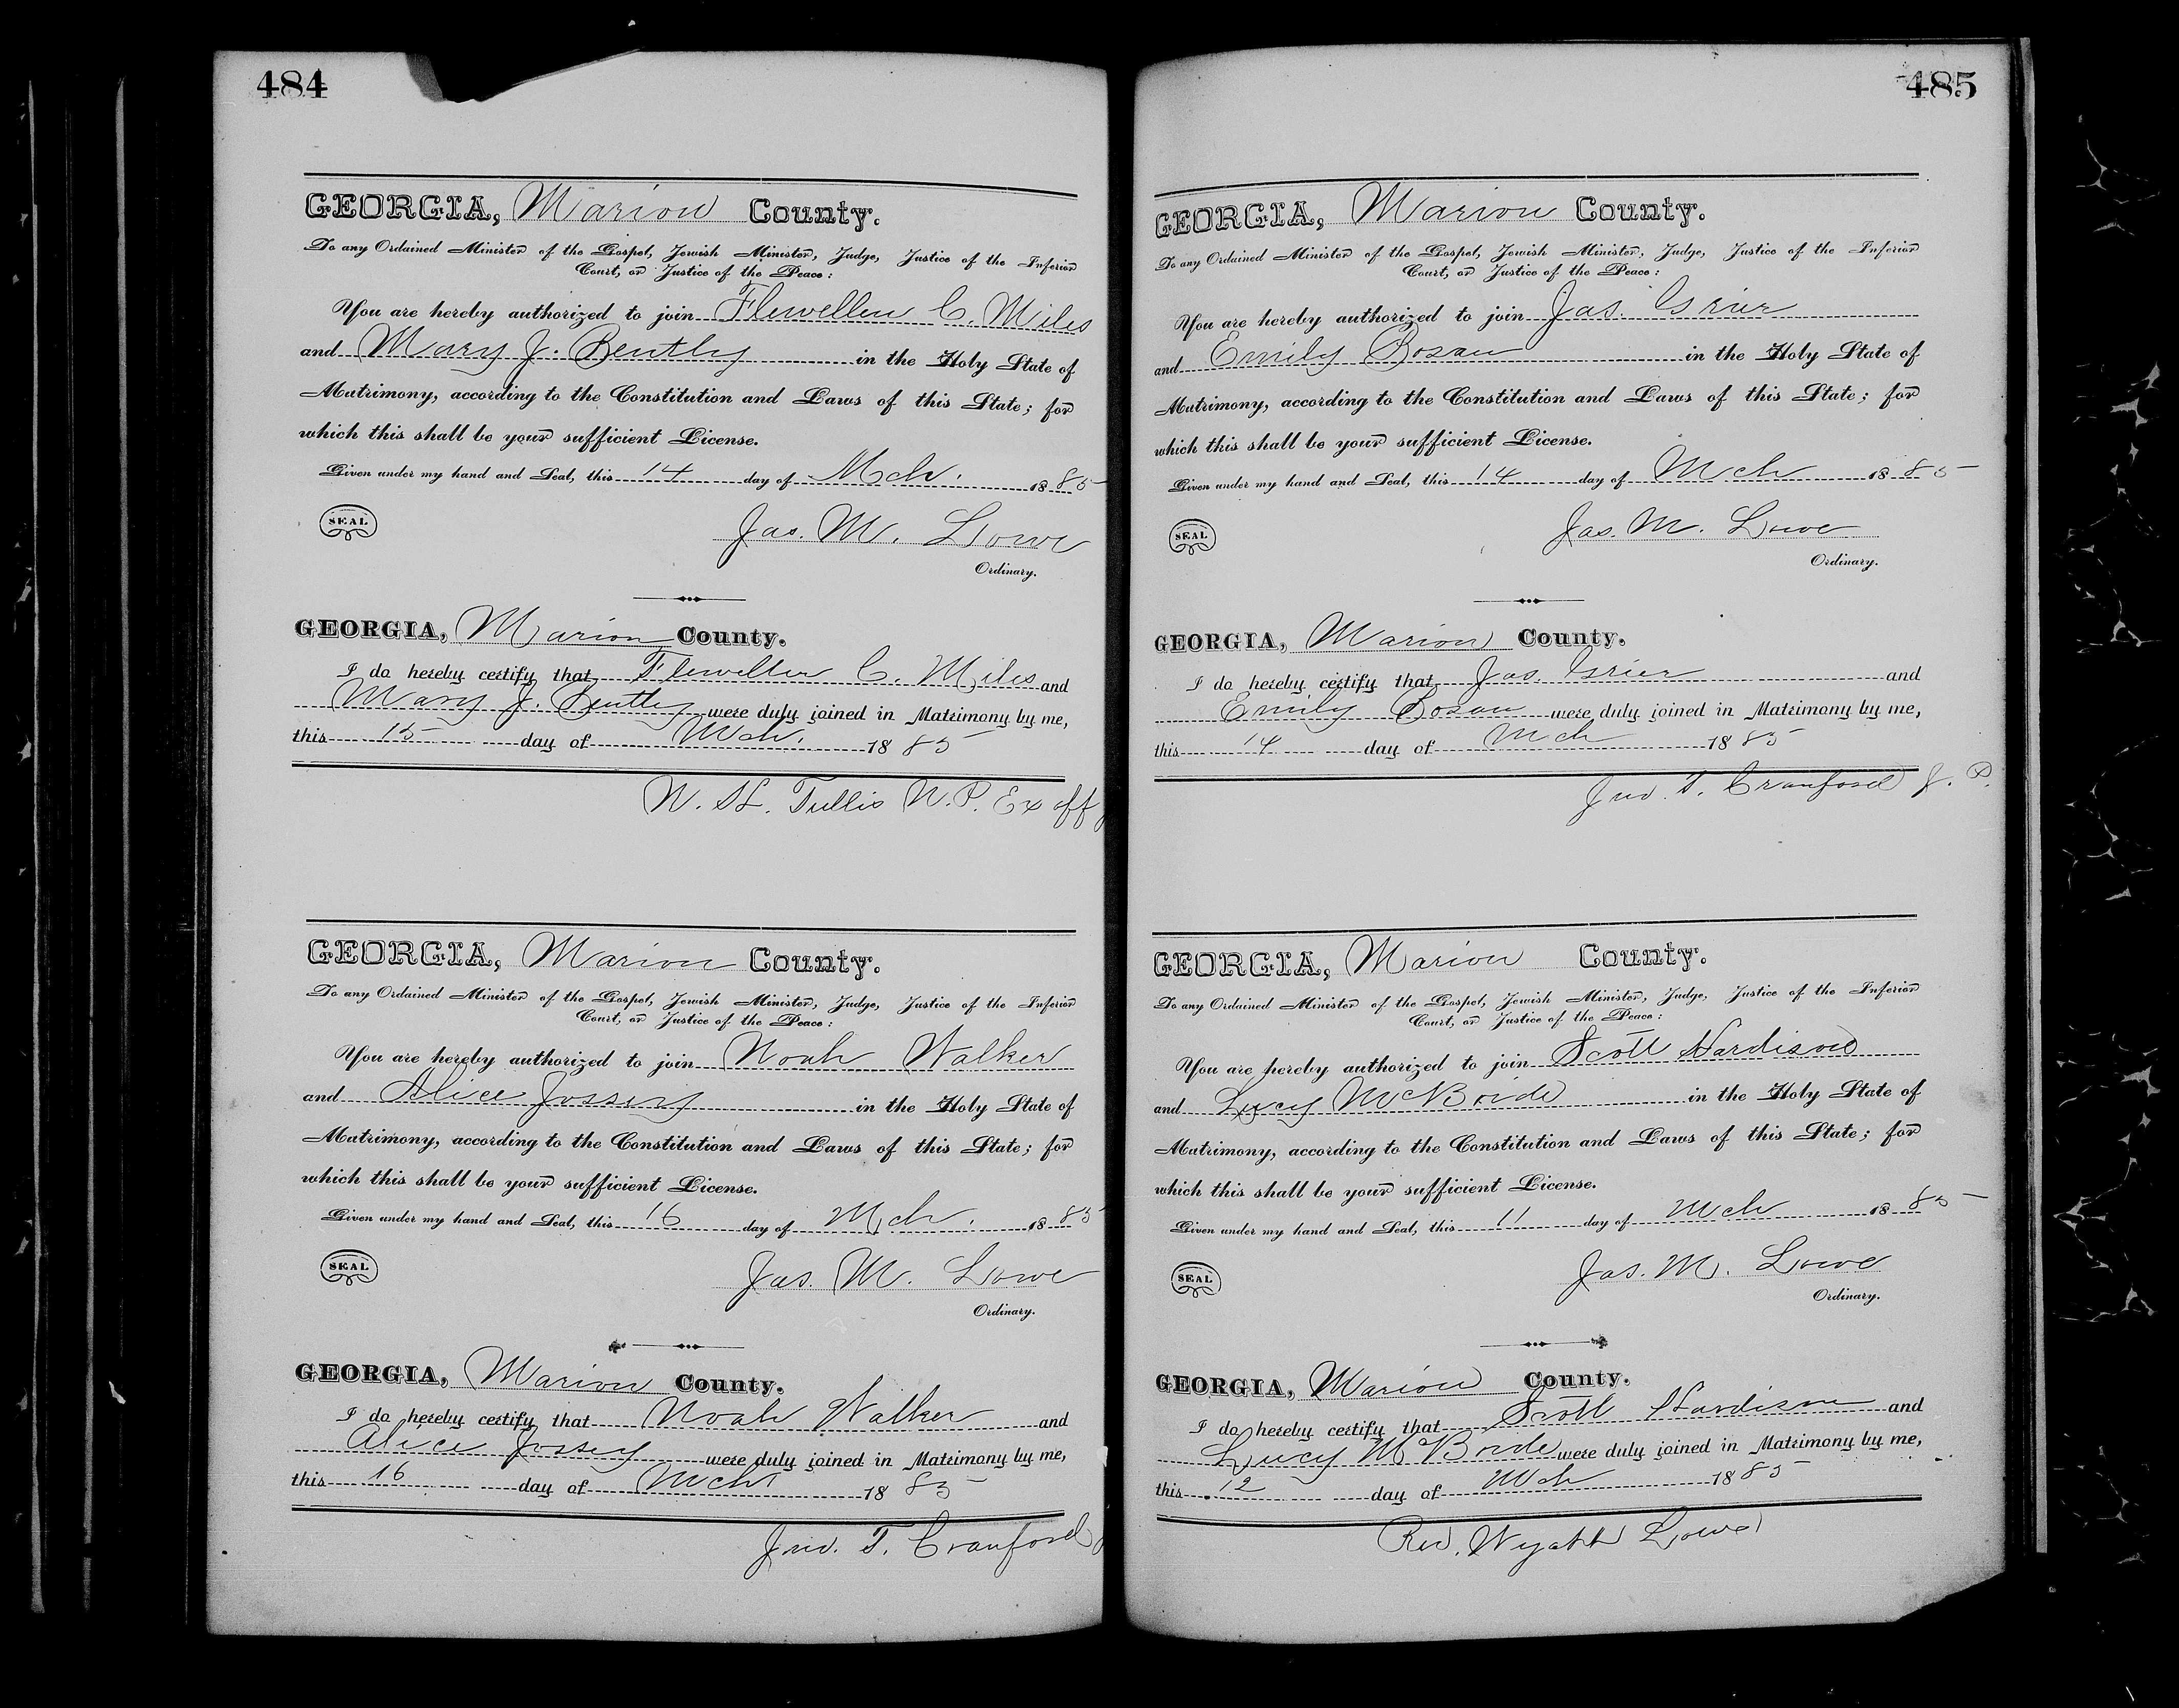 484
GEORGIA, Marion County.
To any Ordained Minister of the Gospel, Jewish Minister, Judge, Justice of the Inferior
Court, or Justice of the Peace:
You are hereby authorized to join Flewellen C. Miles
and Mary J. Bentley in the Holy State of
Matrimony, according to the Constitution and Laws of this State; for
which this shall be your sufficient License.
Given under my hand and Seal, this 14 day of Mch. 1885
SEAL
Jas. M. Lowe
Ordinary.
GEORGIA, Marion County.
I do hereby certify that Flewellen C. Miles and
Mary J. Bentley were duly joined in Matrimony by me,
this 15 day of Mch. 1885
W. H. Tullis N.P. Ex off
GEORGIA, Marion County.
To any Ordained Minister of the Gospel, Jewish Minister, Judge, Justice of the Inferior
Court, or Justice of the Peace:
You are hereby authorized to join Noah Walker
and Alice Jossey in the Holy State of
Matrimony, according to the Constitution and Laws of this State; for
which this shall be your sufficient License.
Given under my hand and Seal, this 16 day of Mch. 1885
SEAL
Jas. M. Lowe
Ordinary.
GEORGIA, Marion County.
I do hereby certify that Noah Walker and
Alice Jossey were duly joined in Matrimony by me,
this 16 day of Mch 1885
Jno. T. Cranford
485
GEORGIA, Marion County.
To any Ordained Minister of the Gospel, Jewish Minister, Judge, Justice of the Inferior
Court, or Justice of the Peace:
You are hereby authorized to join Jas. Grier
and Emily Bosan in the Holy State of
Matrimony, according to the Constitution and Laws of this State; for
which this shall be your sufficient License.
Given under my hand and Seal, this 14 day of Mch 1885
SEAL
Jas. M. Lowe
Ordinary.
GEORGIA, Marion County.
I do hereby certify that Jas. Grier and
Emily Bosan were duly joined in Matrimony by me,
this 14 day of Mch 1885
Jno. T. Cranford J. P.
GEORGIA, Marion County.
To any Ordained Minister of the Gospel, Jewish Minister, Judge, Justice of the Inferior
Court, or Justice of the Peace:
You are hereby authorized to join Scott Hardison
and Lucy McBride in the Holy State of
Matrimony, according to the Constitution and Laws of this State; for
which this shall be your sufficient License.
Given under my hand and Seal, this 11 day of Mch 1885
SEAL
Jas. M. Lowe
Ordinary.
GEORGIA, Marion County.
I do hereby certify that Scott Hardison and
Lucy McBride were duly joined in Matrimony by me,
this 12 day of Mch 1885
Rev. Wyatt Lowe